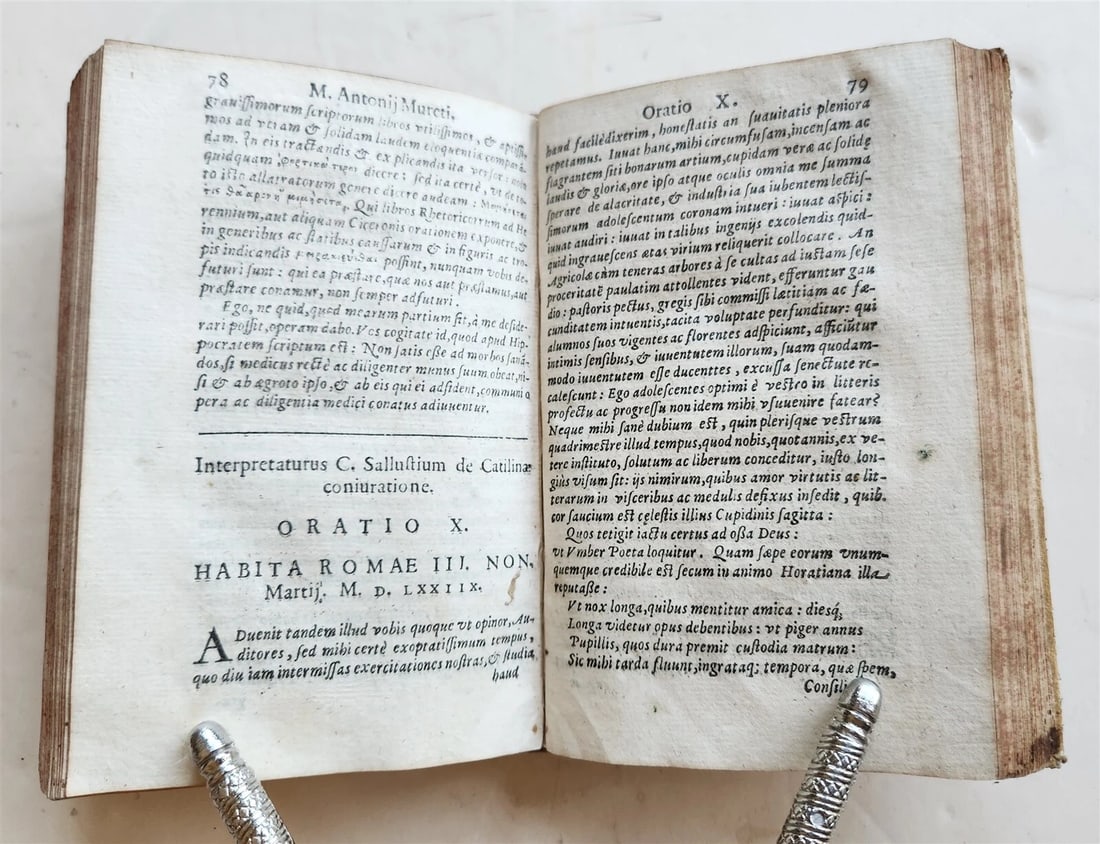 78
M. Antonij Mureti,
grauissimorum scriptorum libros vtilissimos, & aptissi-
mos ad veram & solidam laudem eloquentiæ comparã-
dam. In eis tractandis & explicandis ita versor: non
quidquam dicere: sed ita certè, vt de to-
to isto allatratorum genere dicere audeam:
Qui libros Rhetoricorum ad He-
rennium, aut aliquam Ciceronis orationem exponere, &
in generibus ac statibus caussarum & in figuris ac tro-
pis indicandis possint, nunquam vobis de-
futuri sunt: qui ea præstare, quæ nos aut præstamus, aut
præstare conamur, non semper adfuturi.
Ego, ne quid, quod mearum partium sit, à me deside-
rari possit, operam dabo. Vos cogitate id, quod apud Hip-
pocratem scriptum est: Non satis esse ad morbos sanã-
dos, si medicus rectè ac diligenter munus suum obeat, ni-
si & ab ægroto ipso, & ab eis qui ei adsident, communi o
pera ac diligentia medici conatus adiuuentur.
Interpretaturus C. Sallustium de Catilinæ
coniuratione.
ORATIO X.
HABITA ROMAE III. NON.
Martij. M. D. LXXIIX.
ADuenit tandem illud vobis quoque vt opinor, Au-
ditores, sed mihi certè exoptatissimum tempus,
quo diu iam intermissas exercitationes nostras, & studia
haud
Oratio X. 79
haud facilè dixerim, honestatis an suauitatis pleniora
repetamus. Iuuat hanc, mihi circumfusam, incensam ac
flagrantem siti bonarum artium, cupidam veræ ac solidę
laudis & gloriæ, ore ipso atque oculis omnia me summa
sperare de alacritate, & industria sua iubentem lectis-
simorum adolescentum coronam intueri: iuuat aspici:
iuuat audiri: iuuat in talibus ingenijs excolendis quid-
quid ingrauescens ætas virium reliquerit collocare. An
Agricolæ cùm teneras arbores à se cultas ad iustam sese
proceritatẽ paulatim attollentes vident, efferuntur gau
dio: pastoris pectus, gregis sibi commissi lætitiam ac fæ-
cunditatem intuentis, tacita voluptate perfunditur: qui
alumnos suos vigentes ac florentes adspiciunt, afficiũtur
intimis sensibus, & iuuentutem illorum, suam quodam-
modo iuuentutem esse ducentes, excussa senectute re-
calescunt: Ego adolescentes optimi è vestro in litteris
profectu ac progressu non idem mihi vsuuenire fatear?
Neque mihi sanè dubium est, quin plerisque vestrum
quadrimestre illud tempus, quod nobis, quotannis, ex ve-
tere instituto, solutum ac liberum conceditur, iusto lon-
giùs visum sit: ijs nimirum, quibus amor virtutis ac lit-
terarum in visceribus ac medulis defixus insedit, quib.
cor saucium est cęlestis illius Cupidinis sagitta:
Quos tetigit iactu certus ad ossa Deus:
vt Vmber Poeta loquitur. Quam sæpe eorum vnum-
quemque credibile est secum in animo Horatiana illa
reputasse:
Vt nox longa, quibus mentitur amica: diesq́;
Longa videtur opus debentibus: vt piger annus
Pupillis, quos dura premit custodia matrum:
Sic mihi tarda fluunt, ingrataq; tempora, quæ spem,